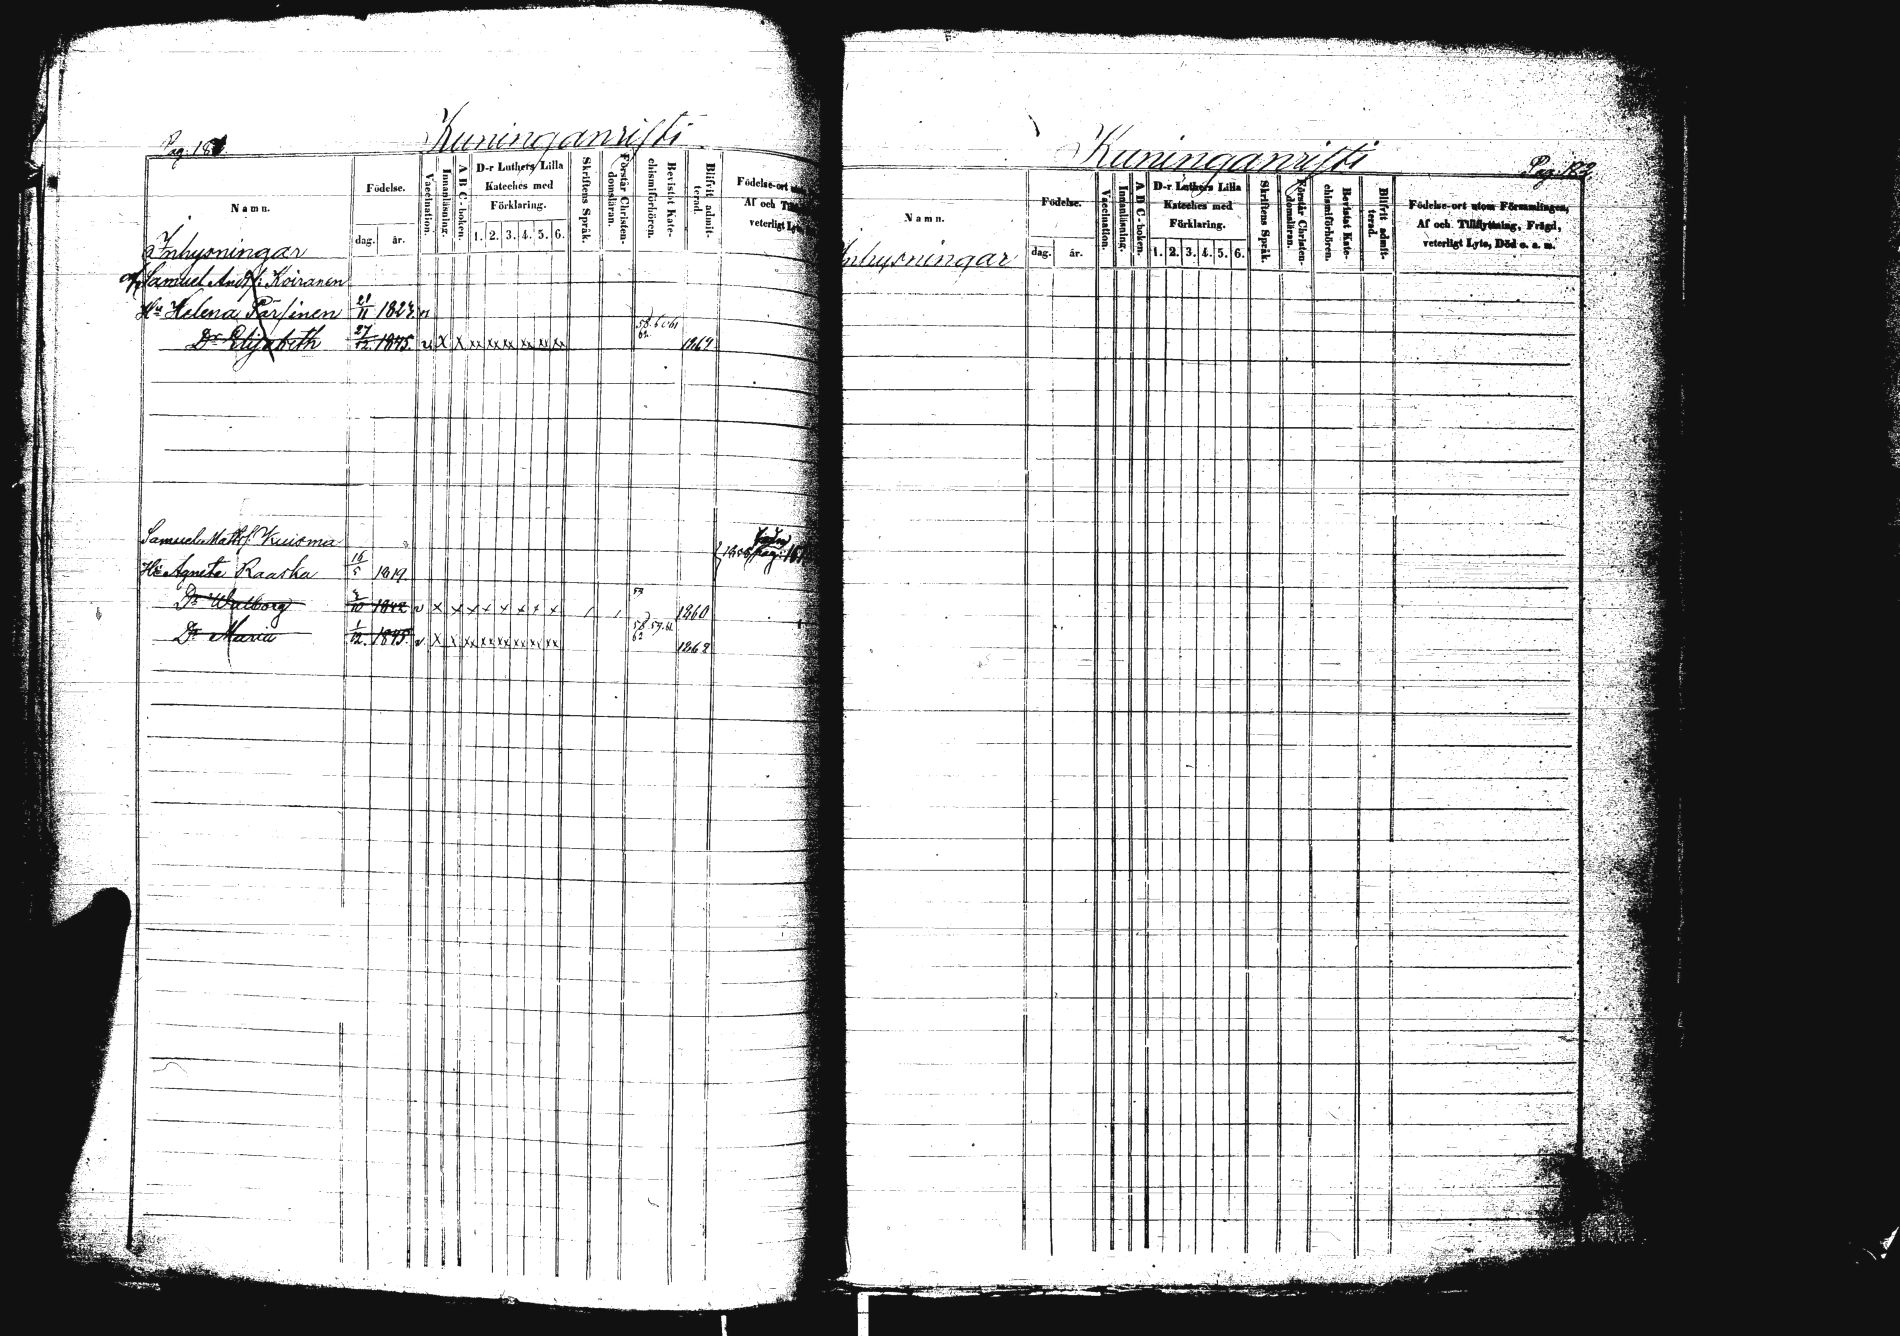 Kuninganristi
Pag. 18
Namn.
Födelse.
dag. år.
Vaccination.
Innanläsning.
A B C-boken.
D-r Luthers Lilla
Kateches med
Förklaring.
1. 2. 3. 4. 5. 6.
Skriftens Språk.
Förstår Christen-
domsläran.
Bevistat Kate-
chismiförhören.
Blifvit admit-
terad.
Födelse-ort
Af och
veterligt
Inhysningar
Samuel And. Koiranen
Hu Helena Pärsinen 21/11 1824
Dr Elisabeth 27/12 1845. v x x xx xx xx xx xx xx 58. 60 61 62. 1864
Samuel Matts. Kuisma
Hu Agneta Raaska 16/5 1819.
Dr Walborg 1842 v x x x x x x x x 1860
Dr Maria 1/12. 1845. v. x x xx xx xx xx xx xx 58. 59. 61 62 1862
Kuninganristi
Pag. 182
Namn.
Födelse.
dag. år.
Vaccination.
Innanläsning.
A B C-boken.
D-r Luthers Lilla
Kateches med
Förklaring.
1. 2. 3. 4. 5. 6.
Skriftens Språk.
Förstår Christen-
domsläran.
Bevistat Kate-
chismiförhören.
Blifvit admit-
terad.
Födelse-ort utom Församlingen,
Af och Tillflyttning, Frägd,
veterligt Lyte, Död o. s. m.
Inhysningar